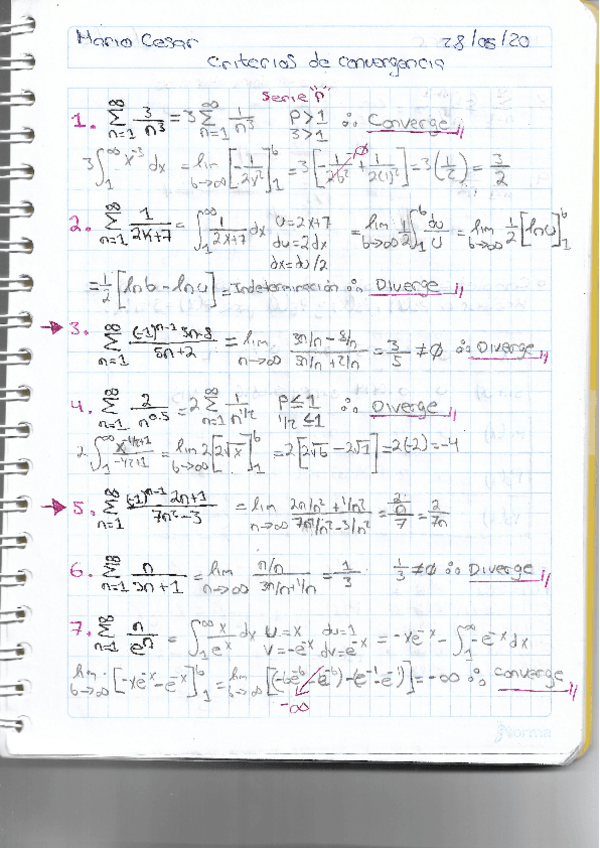 Mario Cesar 28/05/20
Criterios de convergencia
Serie "P"
1. ∞ Σ n=1 3/n³ = 3 ∞ Σ n=1 1/n³ P>1 3>1 ∴ Converge
3∫₁^∞ x⁻³ dx = lim b→∞ [-1/2x²]₁^b = 3[-1/2b² + 1/2(1)²] = 3(1/2) = 3/2
2. ∞ Σ n=1 1/2n+7 = ∫₁^∞ 1/2x+7 dx u=2x+7 du=2dx dx=du/2 = lim b→∞ 1/2 ∫₁^b du/u = lim b→∞ 1/2 [ln u]₁^b
= 1/2 [ln b - ln u] = Indeterminación ∴ Diverge
3. ∞ Σ n=1 (-1)ⁿ⁻¹ 3n-8/5n+2 = lim n→∞ 3n/n - 8/n / 5n/n + 2/n = 3/5 ≠ 0 ∴ Diverge
4. ∞ Σ n=1 2/n^0.5 = 2 ∞ Σ n=1 1/n^1/2 P≤1 1/2 ≤1 ∴ Diverge
2∫₁^∞ x^-1/2+1 / -1/2+1 = lim b→∞ 2[2√x]₁^b = 2[2√b - 2√1] = 2(-2) = -4
5. ∞ Σ n=1 (-1)ⁿ⁻¹ 2n+1/7n²-3 = lim n→∞ 2n/n² + 1/n² / 7n²/n² - 3/n² = 2/n / 7 = 2/7n
6. ∞ Σ n=1 n/3n+1 = lim n→∞ n/n / 3n/n+1/n = 1/3 1/3 ≠ 0 ∴ Diverge
7. ∞ Σ n/eⁿ = ∫₁^∞ x/eˣ dx u=x du=1 v=-e⁻ˣ dv=e⁻ˣ = -xe⁻ˣ - ∫₁^∞ -e⁻ˣ dx
lim b→∞ [-xe⁻ˣ - e⁻ˣ]₁^b = lim b→∞ [(-be⁻ᵇ - e⁻ᵇ) - (e⁻¹ - e⁻¹)] = -∞ ∴ converge
-∞
norma